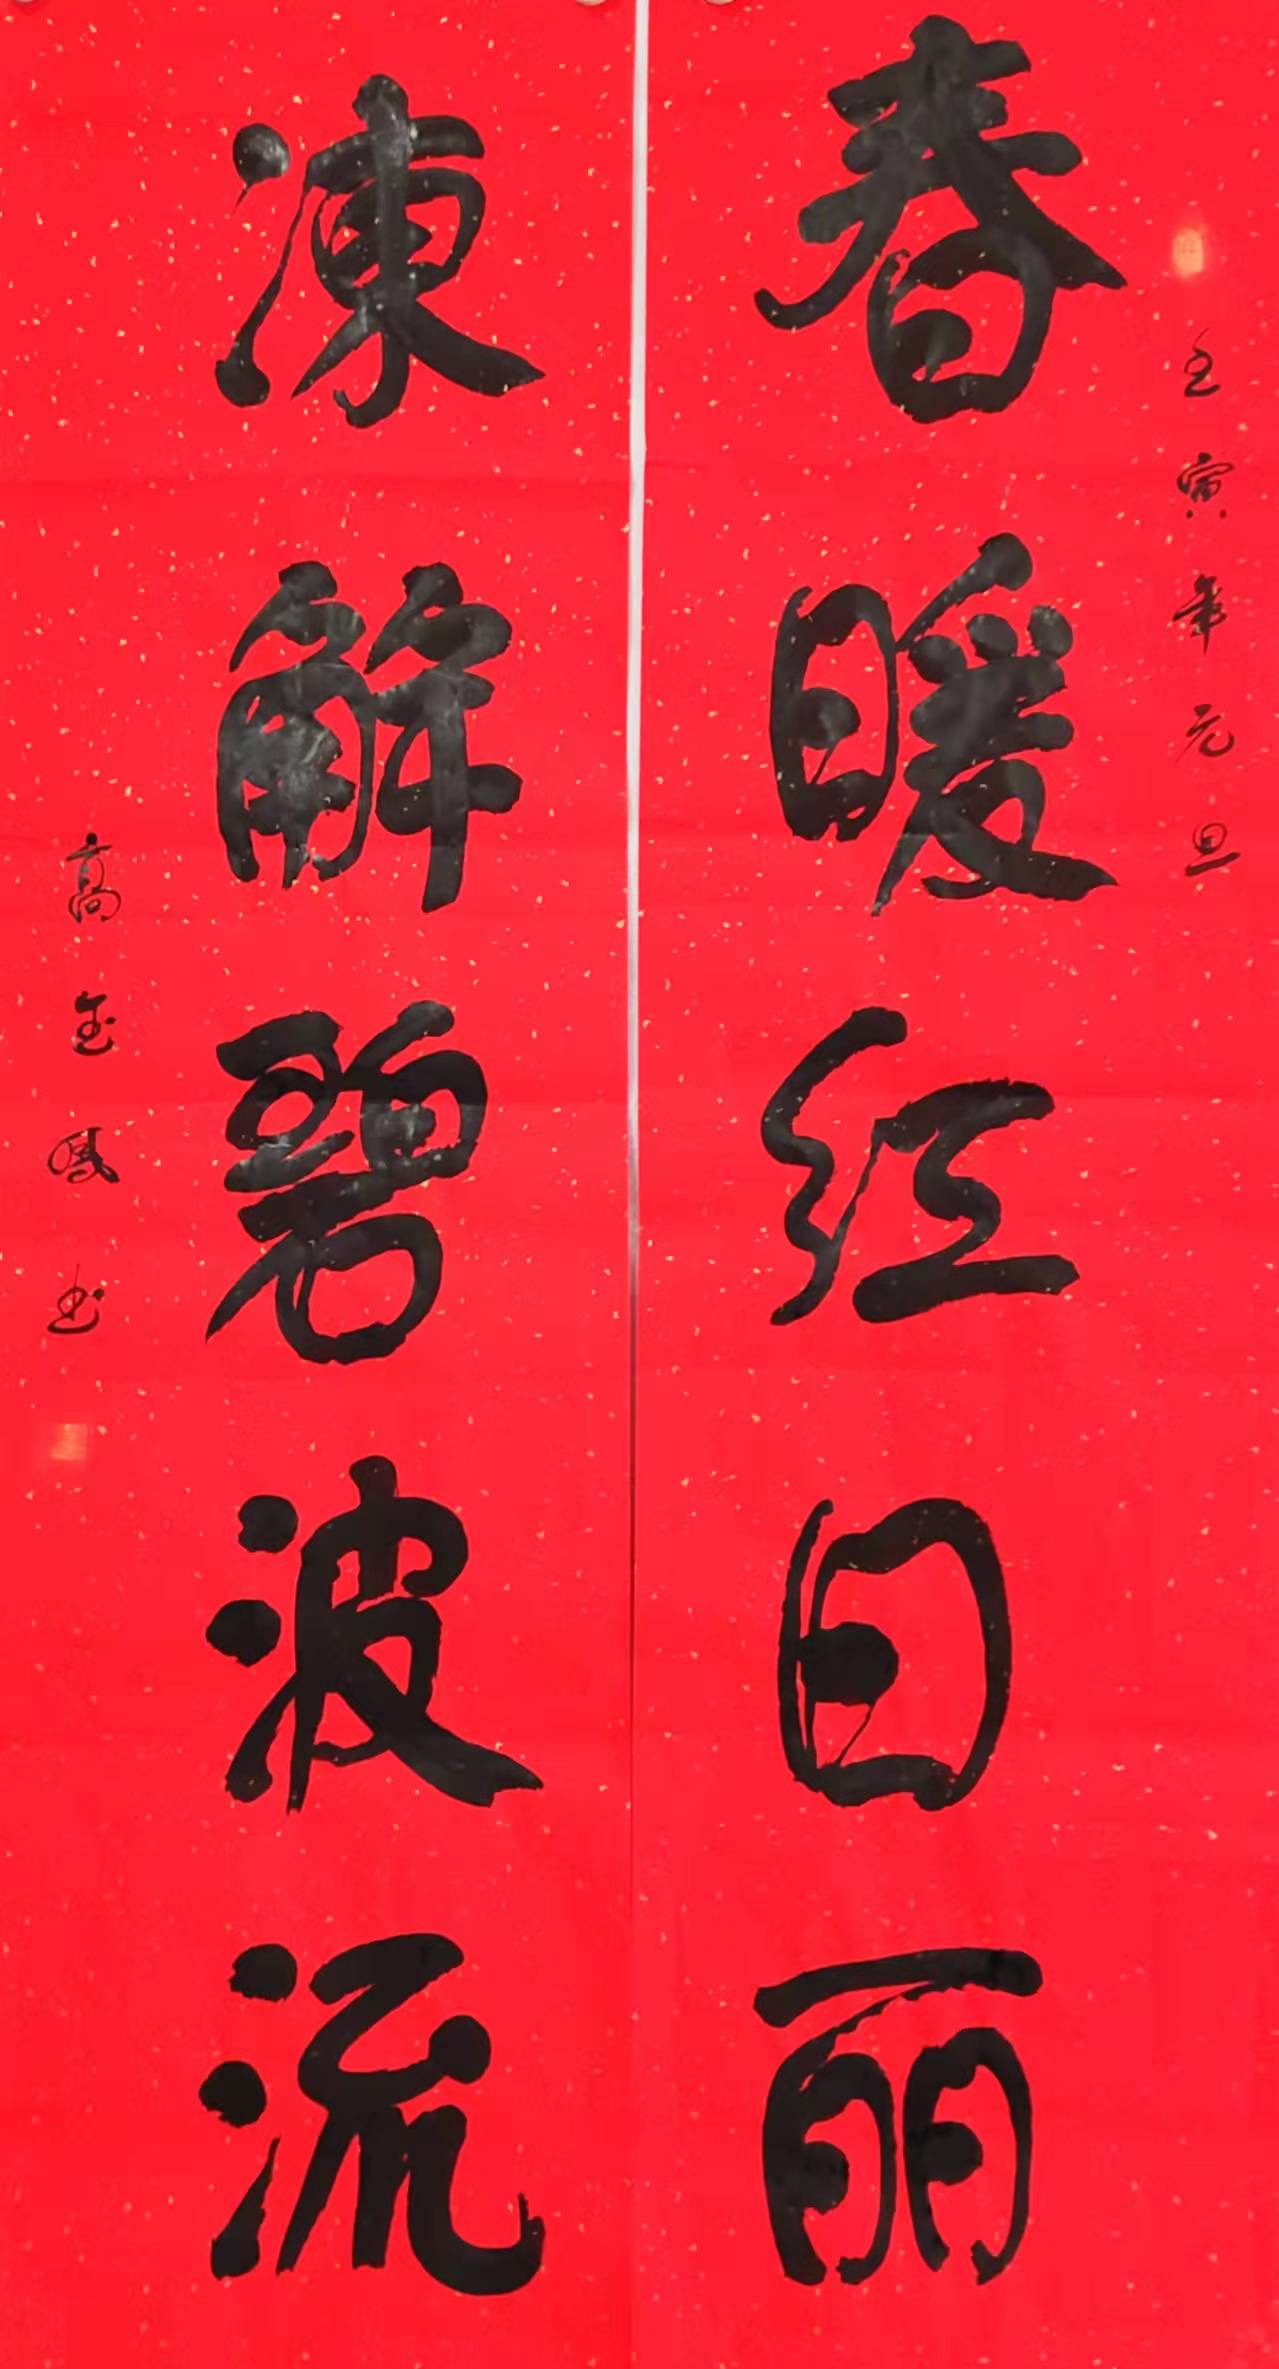 壬寅年元旦
春暖红日丽
凍解碧波流
高金凤书